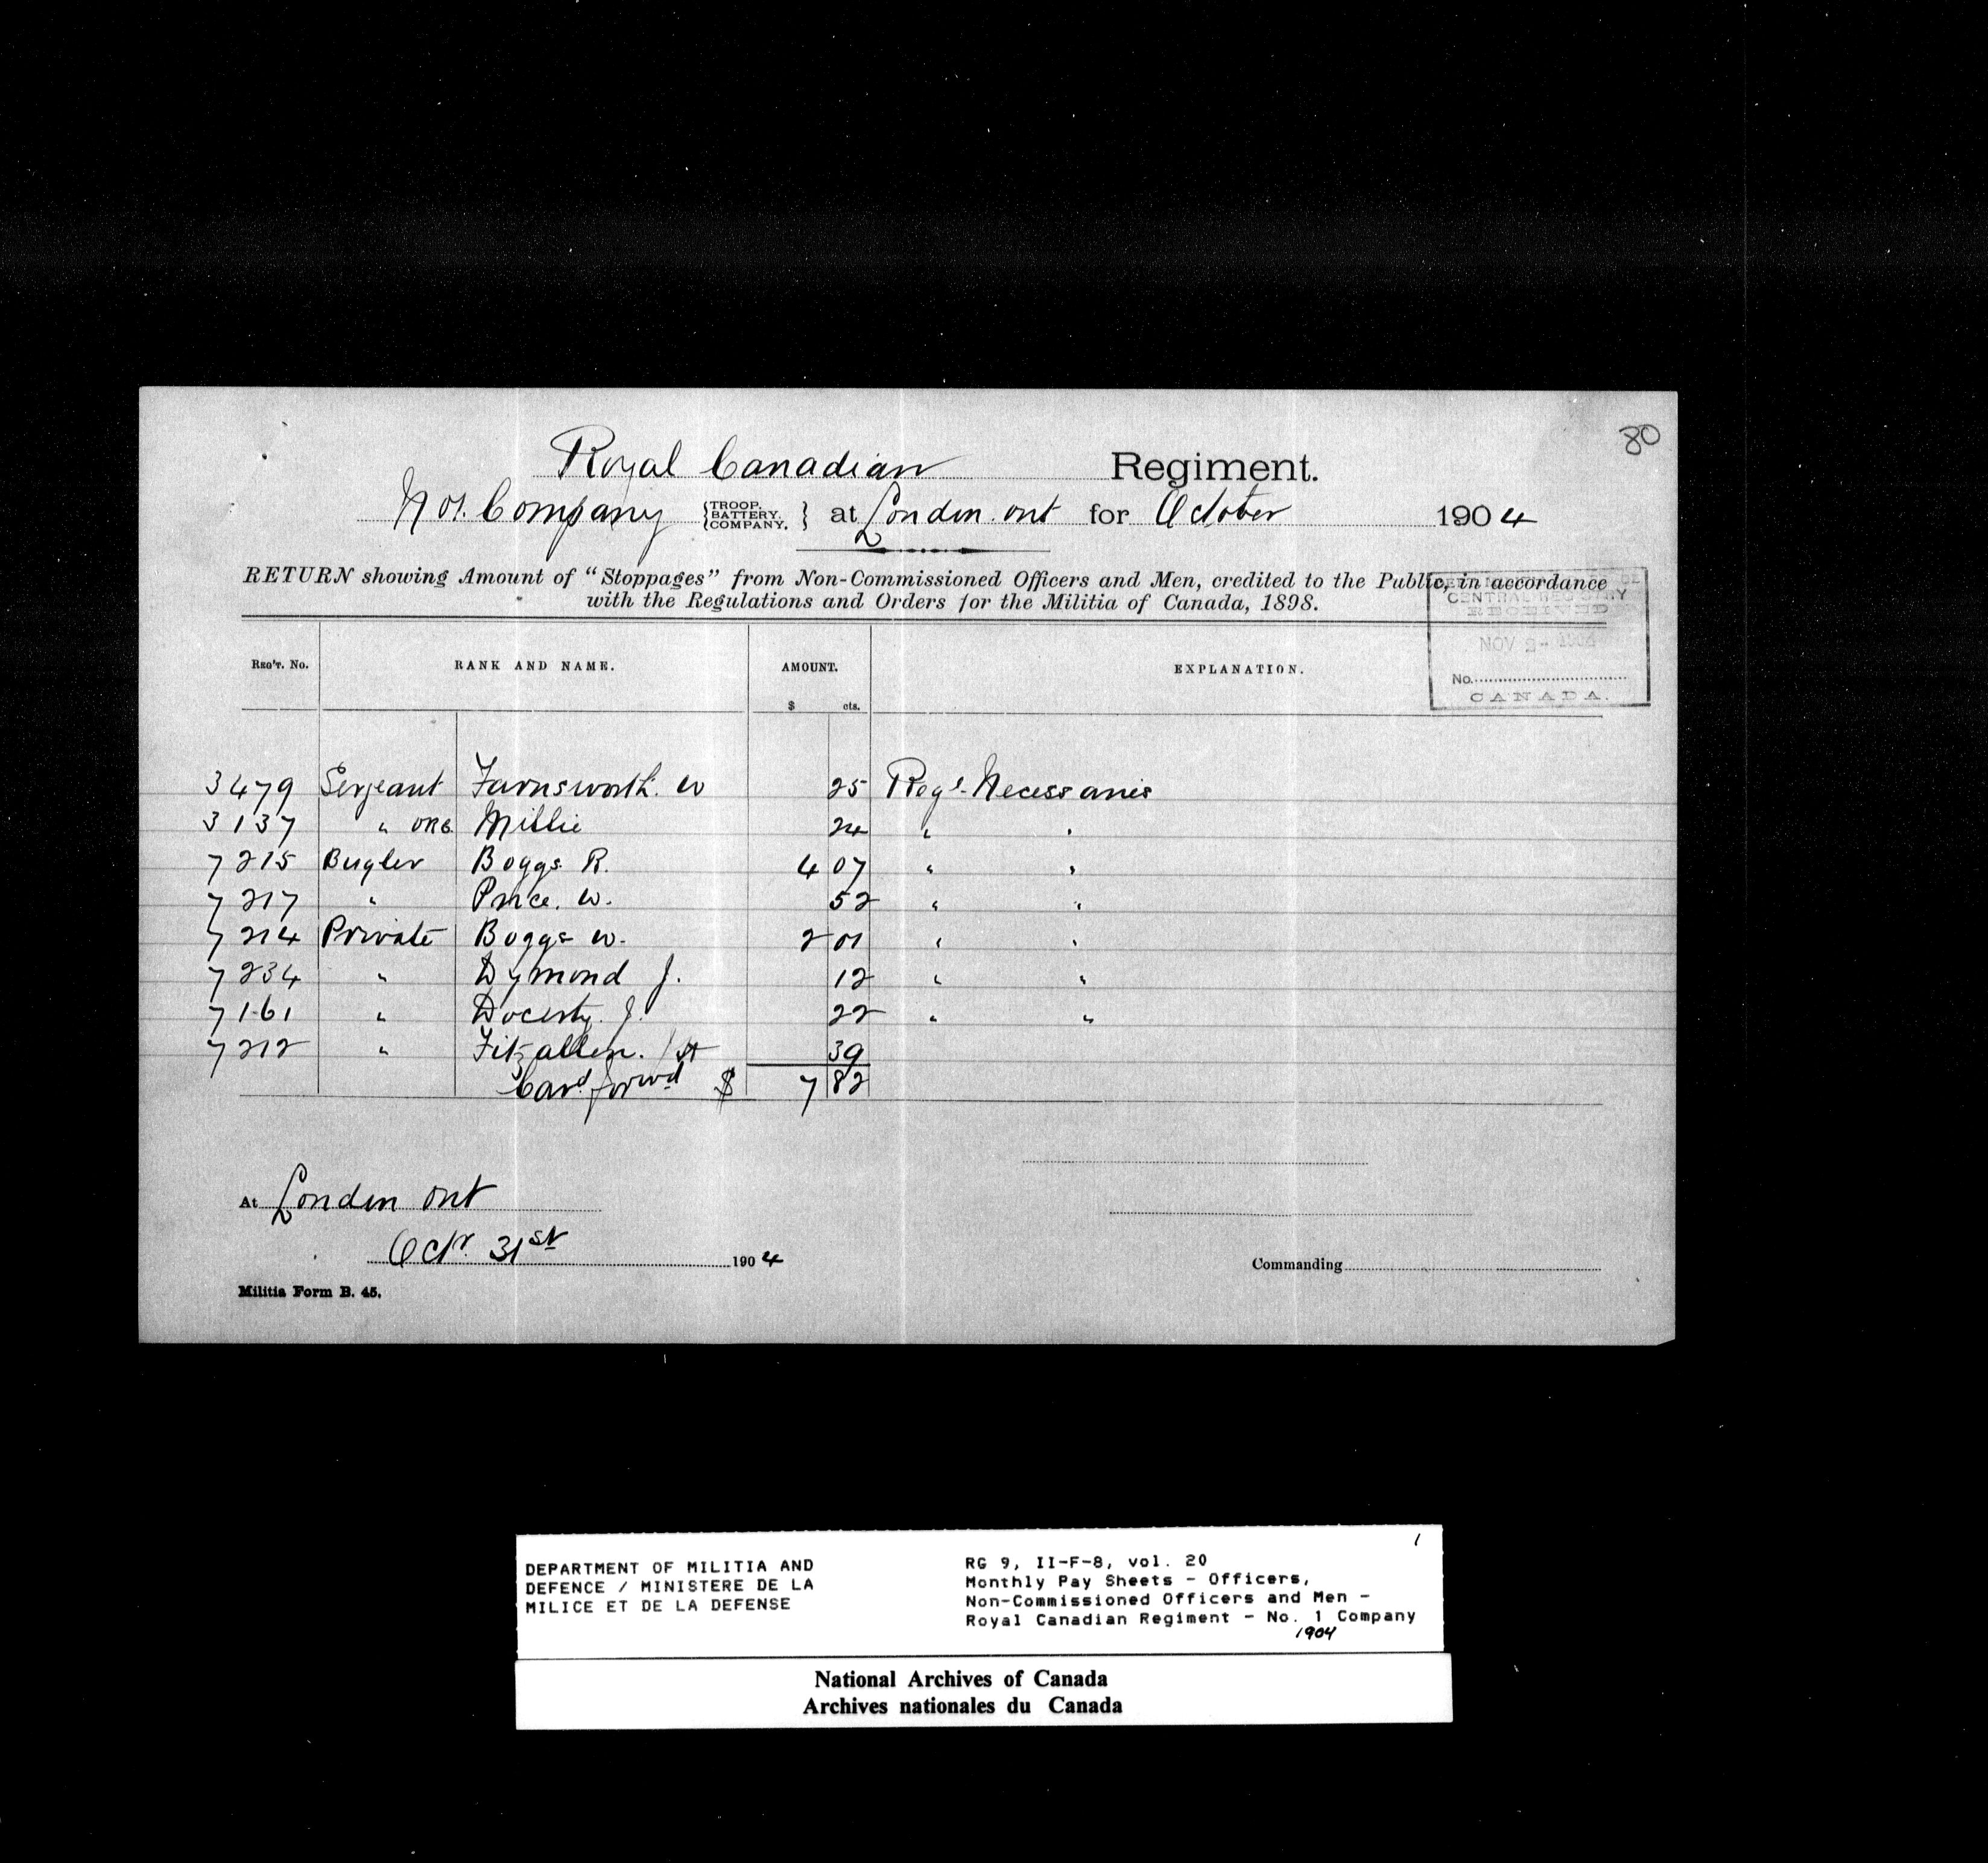 80
Royal Canadian Regiment.
No 1. Company {TROOP. BATTERY. COMPANY.} at London. Ont for October 1904
RETURN showing Amount of “Stoppages” from Non-Commissioned Officers and Men, credited to the Public, in accordance
with the Regulations and Orders for the Militia of Canada, 1898.
CENTRAL REGISTRY
RECEIVED
NOV 2- 1904
No.
CANADA.
REG'T. No. RANK AND NAME. AMOUNT. EXPLANATION.
$ cts.
3479 Serjeant Farnsworth. W 25 Regl. Necessaries
3137 " ORC Millie 24 " "
7215 Bugler Boggs R. 4 07 " "
7217 " Price. W. 52 " "
7214 Private Boggs W. 2 01 " "
7234 " Dymond J. 12 " "
7161 " Docerty. J. 22 " "
7212 " Fitzallen. 39
Card forwd $ 7 82
At London Ont
Octr. 31st 1904
Commanding
Militia Form B. 45.
1
DEPARTMENT OF MILITIA AND
DEFENCE / MINISTERE DE LA
MILICE ET DE LA DEFENSE
RG 9, II-F-8, vol. 20
Monthly Pay Sheets - Officers,
Non-Commissioned Officers and Men -
Royal Canadian Regiment - No. 1 Company
1904
National Archives of Canada
Archives nationales du Canada